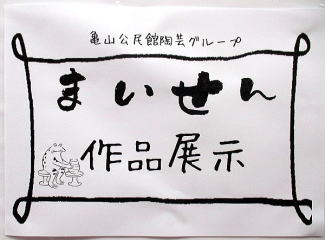 亀山公民館陶芸グループ
まいせん
作品展示